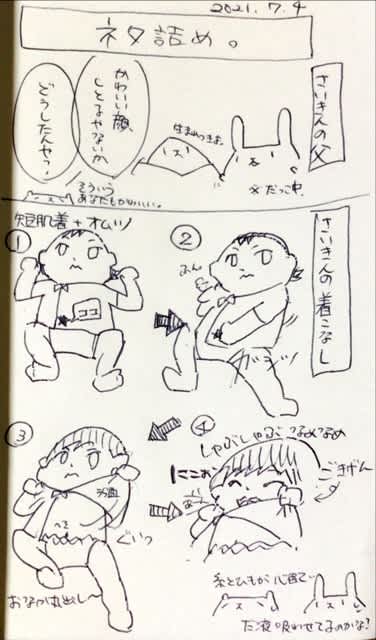 2021.7.4
ネタ詰め。
さいきんの父
かわいい顔
しとるやないか
どうしたんや?
生まれつきよ。
そういう
あなたもかわいい。
父 だっこ中。
さいきんの着こなし
短肌着+オムツ
①
②
ガシッ
③
ぐいっ
おなか丸出し〜
④
しゃぶしゃぶ
にこお
ごきげん
糸とひもが心配で…
だ液吸わせてるのかな?